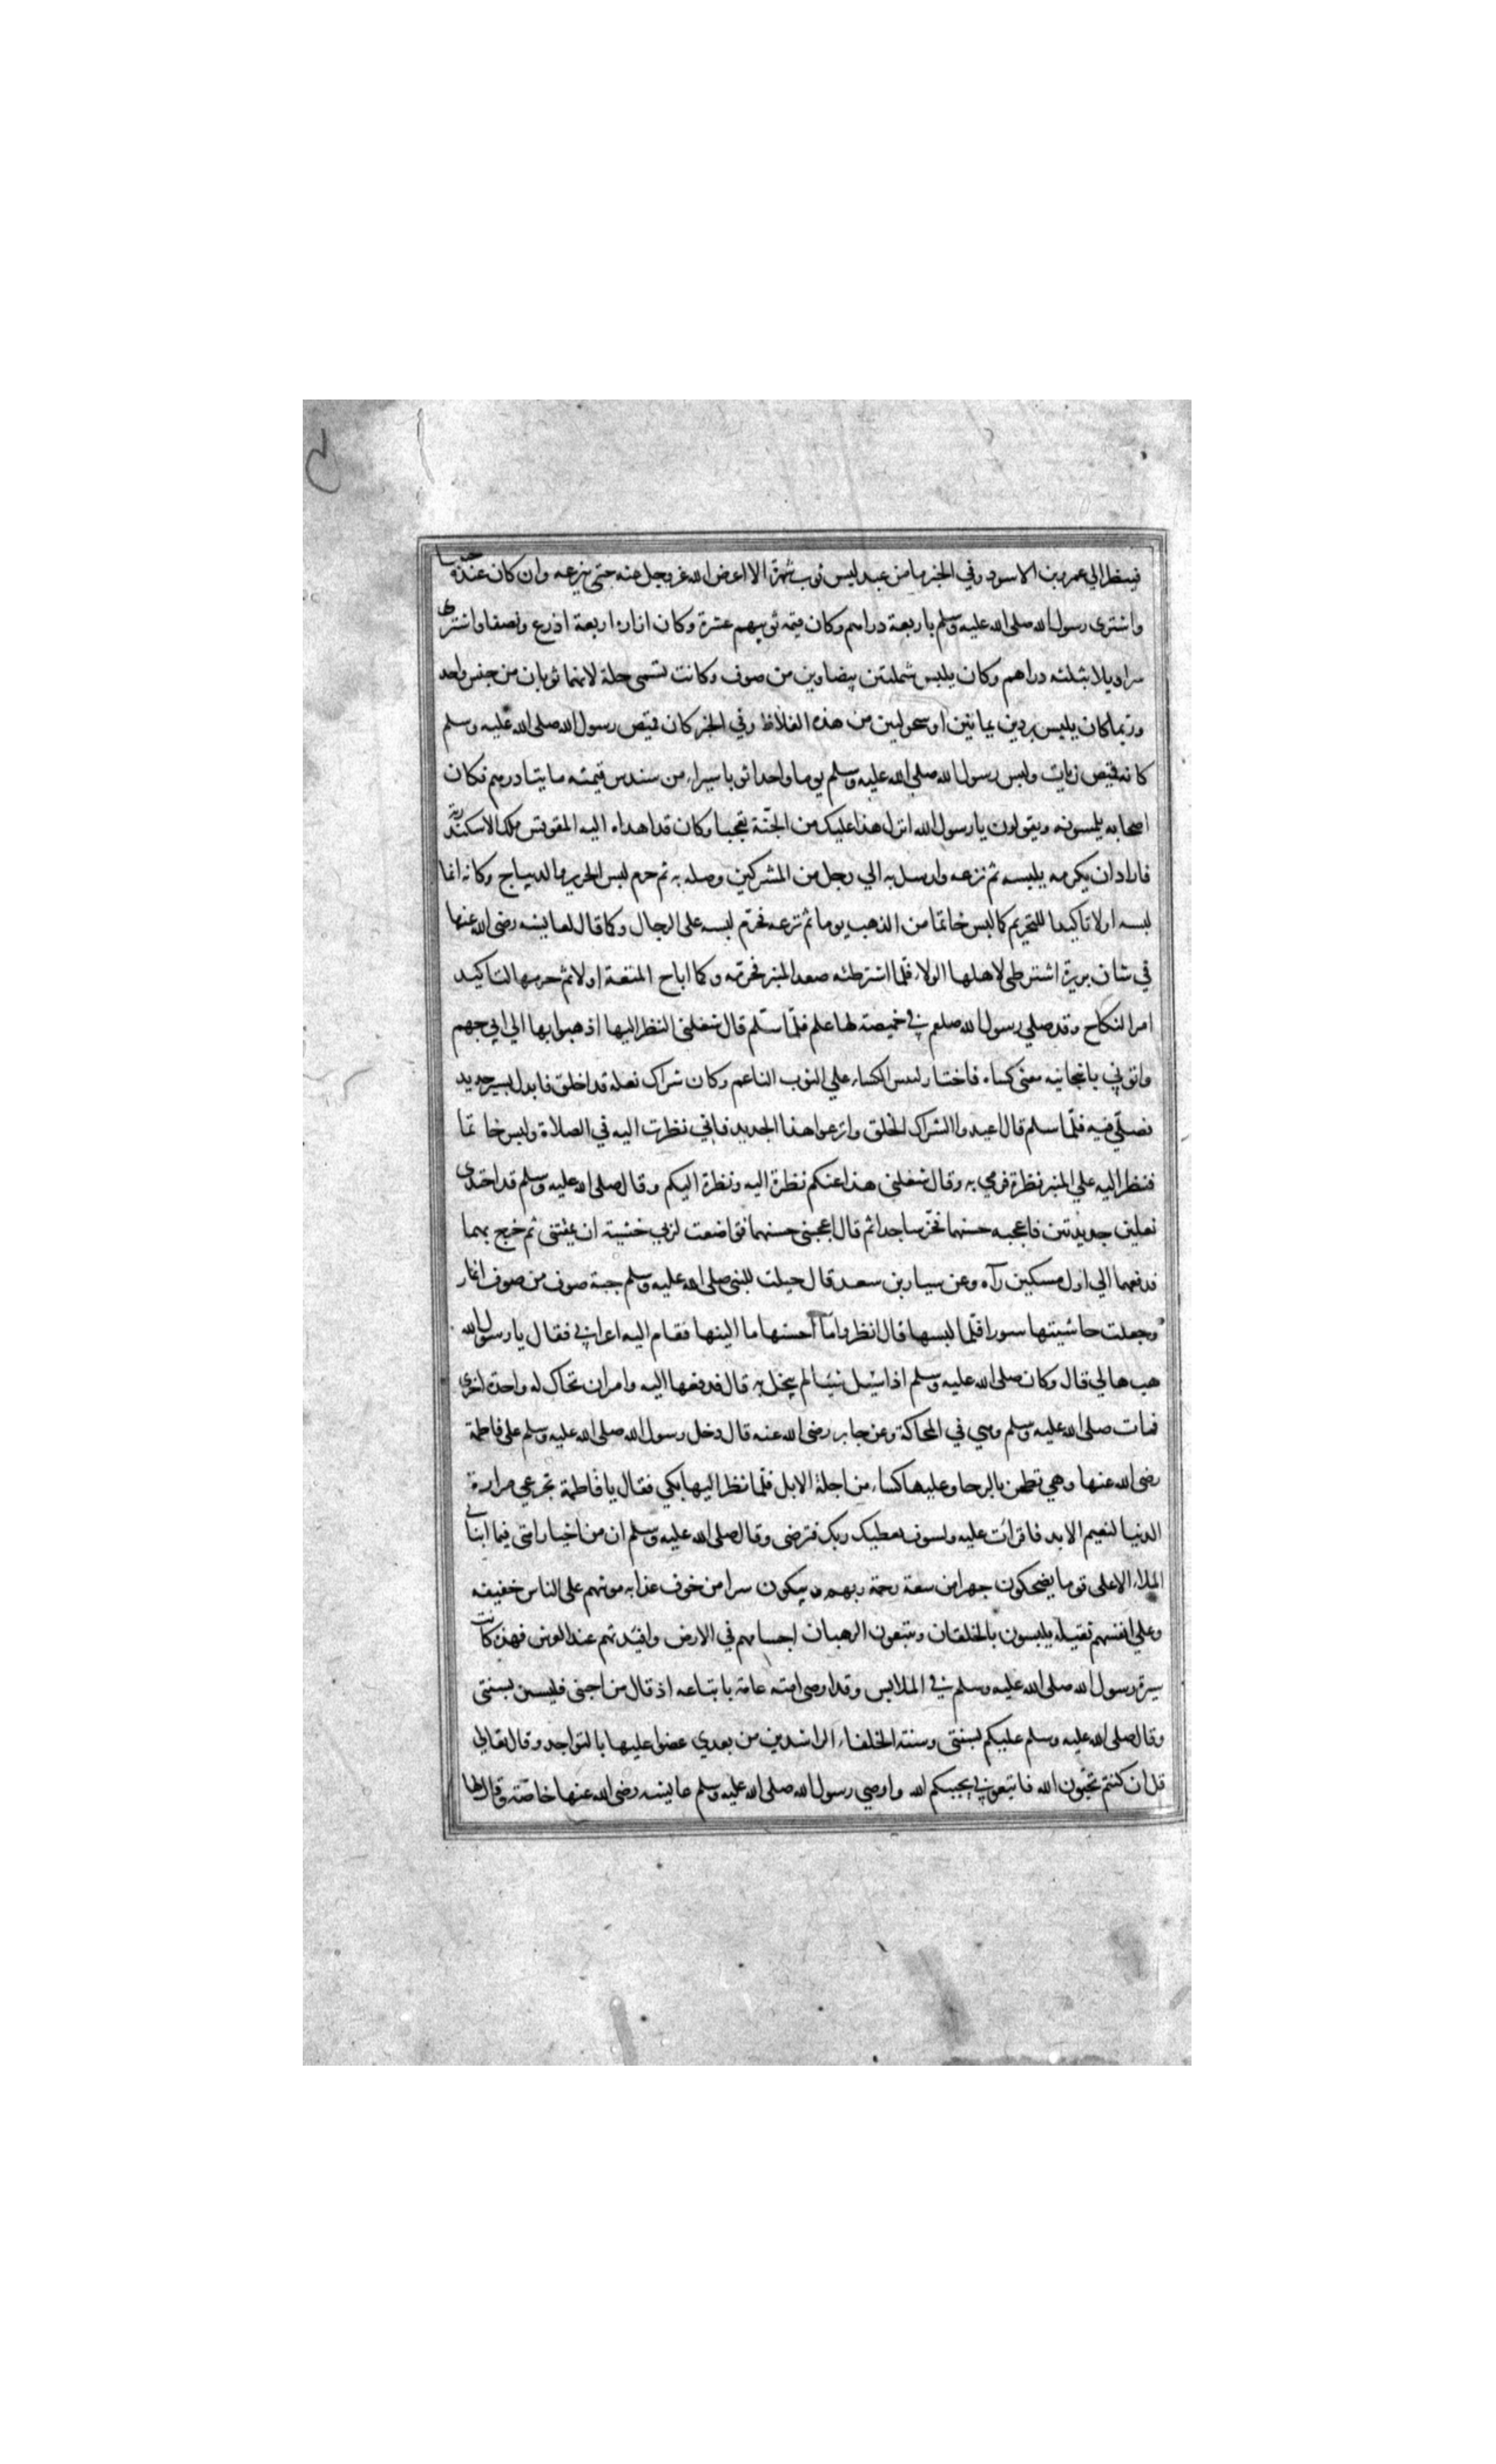 فلينظر الي عمرو بن الاسود وفي الخبر ما من عبد لبس ثوب شهرة الا اعرض الله عز وجل عنه حتى ينزعه وان كان عنده حبيبا
واشترى رسول الله صلى الله عليه وسلم باربعة دراهم وكان قيمة ثوبيهم عشرة وكان ازاره اربعة اذرع ونصفا واشترى
سراويلا بثلثه دراهم وكان يلبس شملتين بيضاوين من صوف وكانت تسمى حلة لانهما ثوبان من جنس واحد
وربما كان يلبس بردين يمانيين او سحوليين من هذه الغلاظ وفي الخبر كان قميص رسول الله صلى الله عليه وسلم
كانه قميص زيات ولبس رسول الله صلى الله عليه وسلم يوما واحدا ثوبا سيراء من سندس قيمته مايتا درهم فكان
اصحابه يلمسونه ويقولون يا رسول الله انزل هذا عليك من الجنّة تعجبا وكان قد اهداه اليه المقوقس ملك الاسكندرية
فاراد ان يكرمه بلبسه ثم نزعه وارسل به الي رجل من المشركين وصله به ثم حرم لبس الحرير والديباج وكانه انما
لبسه اولا تاكيدا للتحريم كما لبس خاتما من الذهب يوما ثم نزعه فحرّم لبسه على الرجال وكما قال لعايشه رضى الله عنها
في شان بريرة اشترطى لاهلها الولاء فلمّا اشترطته صعد المنبر فحرّمه وكما اباح المتعة اولا ثم حرمها لتاكيد
امر النكاح وقد صلي رسول الله صلعم في خميصة لها علم فلمّا سلّم قال شغلنى النظر اليها اذهبوا بها الي ابي جهم
واتوني بانبجانيه معنى كساء فاختار لبس الكساء علي الثوب الناعم وكان شراك نعله قد اخلق فابدل بسير جديد
فصلّي فيه فلمّا سلم قال اعيدوا الشراك الخلق وانزعوا هذا الجديد فاني نظرت اليه في الصلاة ولبس خاتما
فنظر اليه علي المنبر نظرة فرمي به وقال شغلنى هذا عنكم نظرة اليه ونظرة اليكم وقال صلى الله عليه وسلم قد احتذى
نعلين جديدتين فاعجبه حسنهما فخرّ ساجدا ثم قال اعجبنى حسنهما فتواضعت لربي خشية ان يمقتنى ثم خرج بهما
فدفعهما الي اول مسكين رآه وعن سيار بن سعد قال حيكت للنبى صلى الله عليه وسلم جبة صوف من صوف انمار
وجعلت حاشيتها سودا فلمّا لبسها قال انظروا ما احسنها ما الينها فقام اليه اعرابي فقال يا رسول الله
هبها لي قال وكان صلى الله عليه وسلم اذا سُيل شيئا لم يبخل به قال فدفعها اليه وامر ان تحاك له واحدة اخرى
فمات صلى الله عليه وسلم وهي في المحاكة وعن جابر رضى الله عنه قال دخل رسول الله صلى الله عليه وسلم على فاطمة
رضى الله عنها وهي تطحن بالرحا وعليها كساء من اجلة الابل فلمّا نظر اليها بكي فقال يا فاطمة تجرعي مرارة
الدنيا لنعيم الابد فانزلت عليه ولسوف يعطيك ربك فترضى وقال صلى الله عليه وسلم ان من اخيار امتى فيما انبانى
الملاء الاعلى قوما يضحكون جهرا من سعة رحمة ربهم ويبكون سرا من خوف عذابه مونتهم على الناس خفيفه
وعلي انفسهم ثقيله يلبسون بالخلقان ويتبعون الرهبان اجسامهم في الارض وافئدتهم عند العرش فهذه كانت
سيرة رسول الله صلى الله عليه وسلم في الملابس وقد اوصى امته عامة باتباعه اذ قال من احبنى فليستن بسنتى
وقال صلى الله عليه وسلم عليكم بسنتى وسنة الخلفاء الراشدين من بعدي عضوا عليها بالنواجد وقال تعالي
قل ان كنتم تحبّون الله فاتبعوني يحببكم الله واوصي رسول الله صلى الله عليه وسلم عايشه رضى الله عنها خاصّة وقال لها